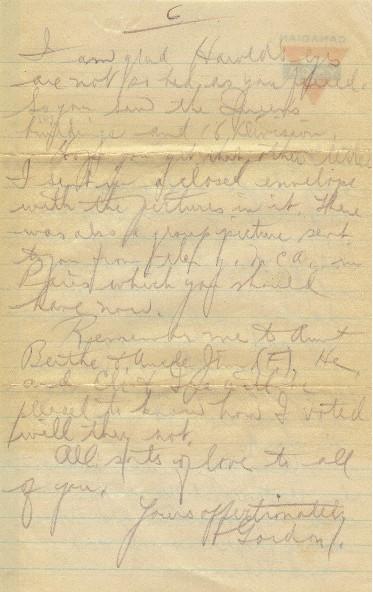 6
CANADIAN
I am glad Harold's eyes
are not so bad as you feared.
So you saw the Queens
buildings and
Hope you get that other letter
I sent in a closed envelope
with the pictures in it. There
was also a group picture sent
to you from the Y.M.C.A. in
Paris which you should
have now.
Remember me to Aunt
Berthe & Uncle Jim (F). He
and
pleased to know how I voted
will they not.
All sorts of love to all
of you.
Yours affectionately
Gordon.